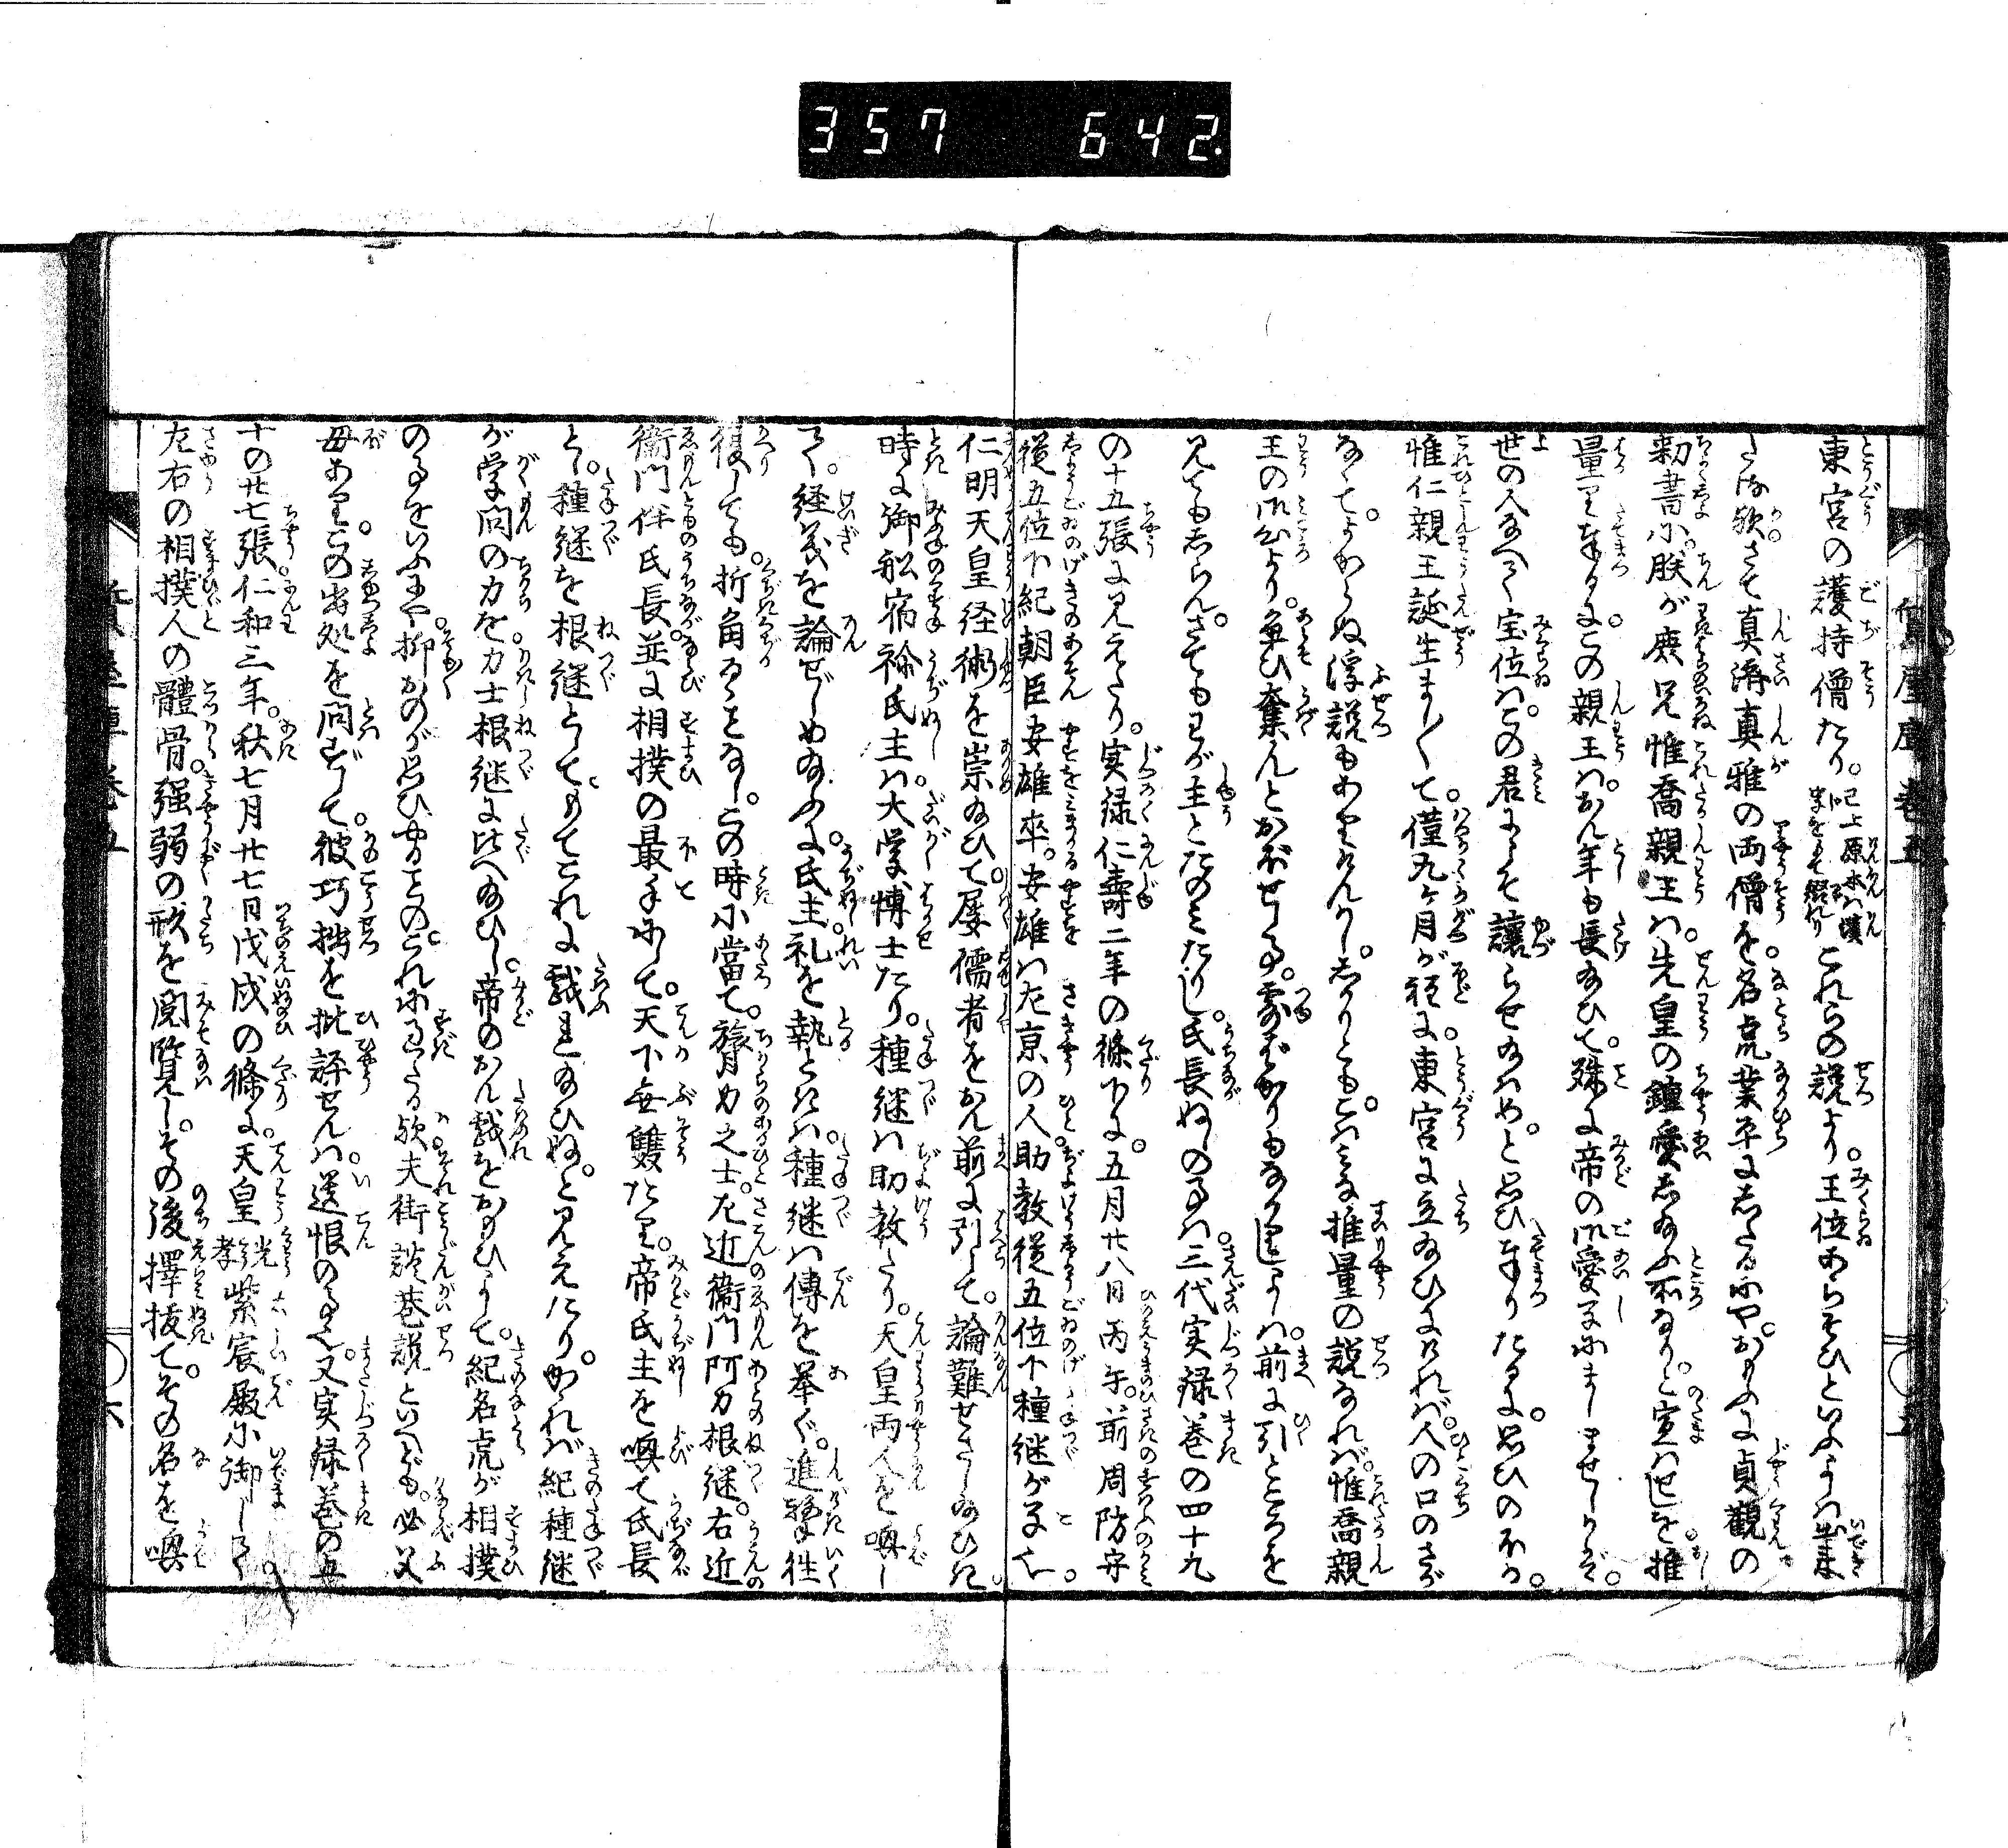 357 642.
東宮の護持僧たり。已上原本ハ填
これらの説より。王位あらそひといふよりハ出来
たる歟。さて真済真雅の両僧を。名虎業平にしたるにや。おもふに貞観の
勅書に。朕が庶兄惟喬親王ハ。先皇の鍾愛し給ふ所なり。と宣ハせしを推
量り奉るに。この親王ハ。おん年も長給ひて。殊に帝の御愛子にましませしかバ。
世の人なべて宝位ハ。この君にこそ譲らせ給はめ。と思ひ奉りたるに。思ひのほか。
惟仁親王誕生まし〳〵て。僅九ヶ月が程に。東宮に立給ひにけれバ。人の口のさが
なくて。よからぬ浮説もありけんかし。しかりとも。こハミな推量の説なれバ。惟喬親
王の御心より。争ひ奪んとおぼせし事。露ばかりもなかりしよしハ。前に引ところを
見ても しらん。さてもわが主とたのミたりし。氏長ぬしの事ハ。三代実録巻の四十九
の十五張に見えたり。実録仁寿二年の條下に。五月廿八日丙午。前周防守
従五位下紀朝臣安雄卒。安雄ハ左京の人。助教従五位下種継が子也。
仁明天皇経術を崇給ひて。屡儒者をおん前に引して。論難せさし給ひにき。
時に御船宿祢氏主ハ。大学博士たり。種継ハ助教たり。天皇両人を喚し
て。経義を論ぜしめ給ふに。氏主。礼を執ときハ。種継ハ傳を挙ぐ。進撃往
復しても。折角るゝことなし。この時に當て。膂力之士。左近衛門阿刀根継。右近
衛門伴氏長。並に相撲の最手にして。天下無雙たり。帝氏主を喚て氏長
とし。種継を根継とし。もてこれに戯れ給ひぬ。と見えたり。かゝれバ紀種継
が学問の力を。力士根継に比へ給ひし。帝のおん戯をおもひよりて。紀名虎が相撲
の事をいふにや。抑おのが思ひよることの。これにすぎたる歟。夫街談巷説といへども。必父
母あり。この出処を問ずして。彼巧拙を批評せんハ。遺恨の事也。又実録巻の五
十の廿七張。仁和三年。秋七月廿七日戊戌の條に。天皇光孝紫宸殿に御して。
左右の相撲人の體骨。強弱の形を閲覧し。その後擇抜て。その名を喚
巻五